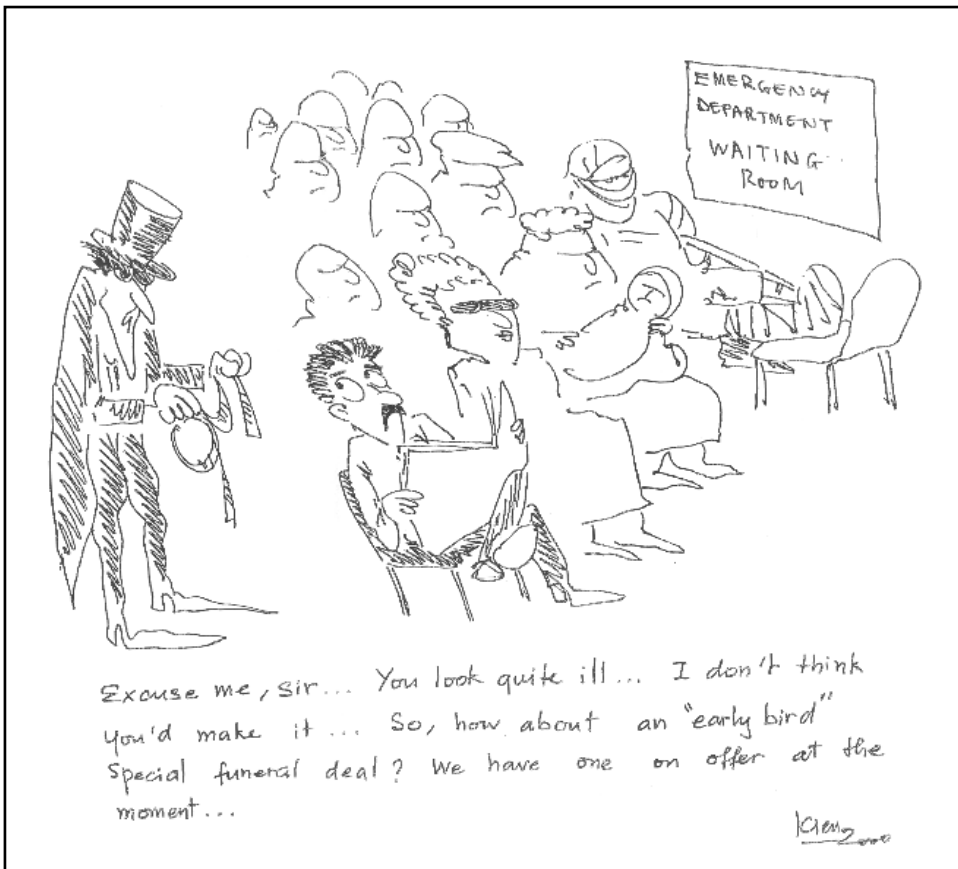 EMERGENCY
DEPARTMENT
WAITING
ROOM
Excuse me, sir... You look quite ill... I don't think
you'd make it... So, how about an "early bird"
special funeral deal? We have one on offer at the
moment...